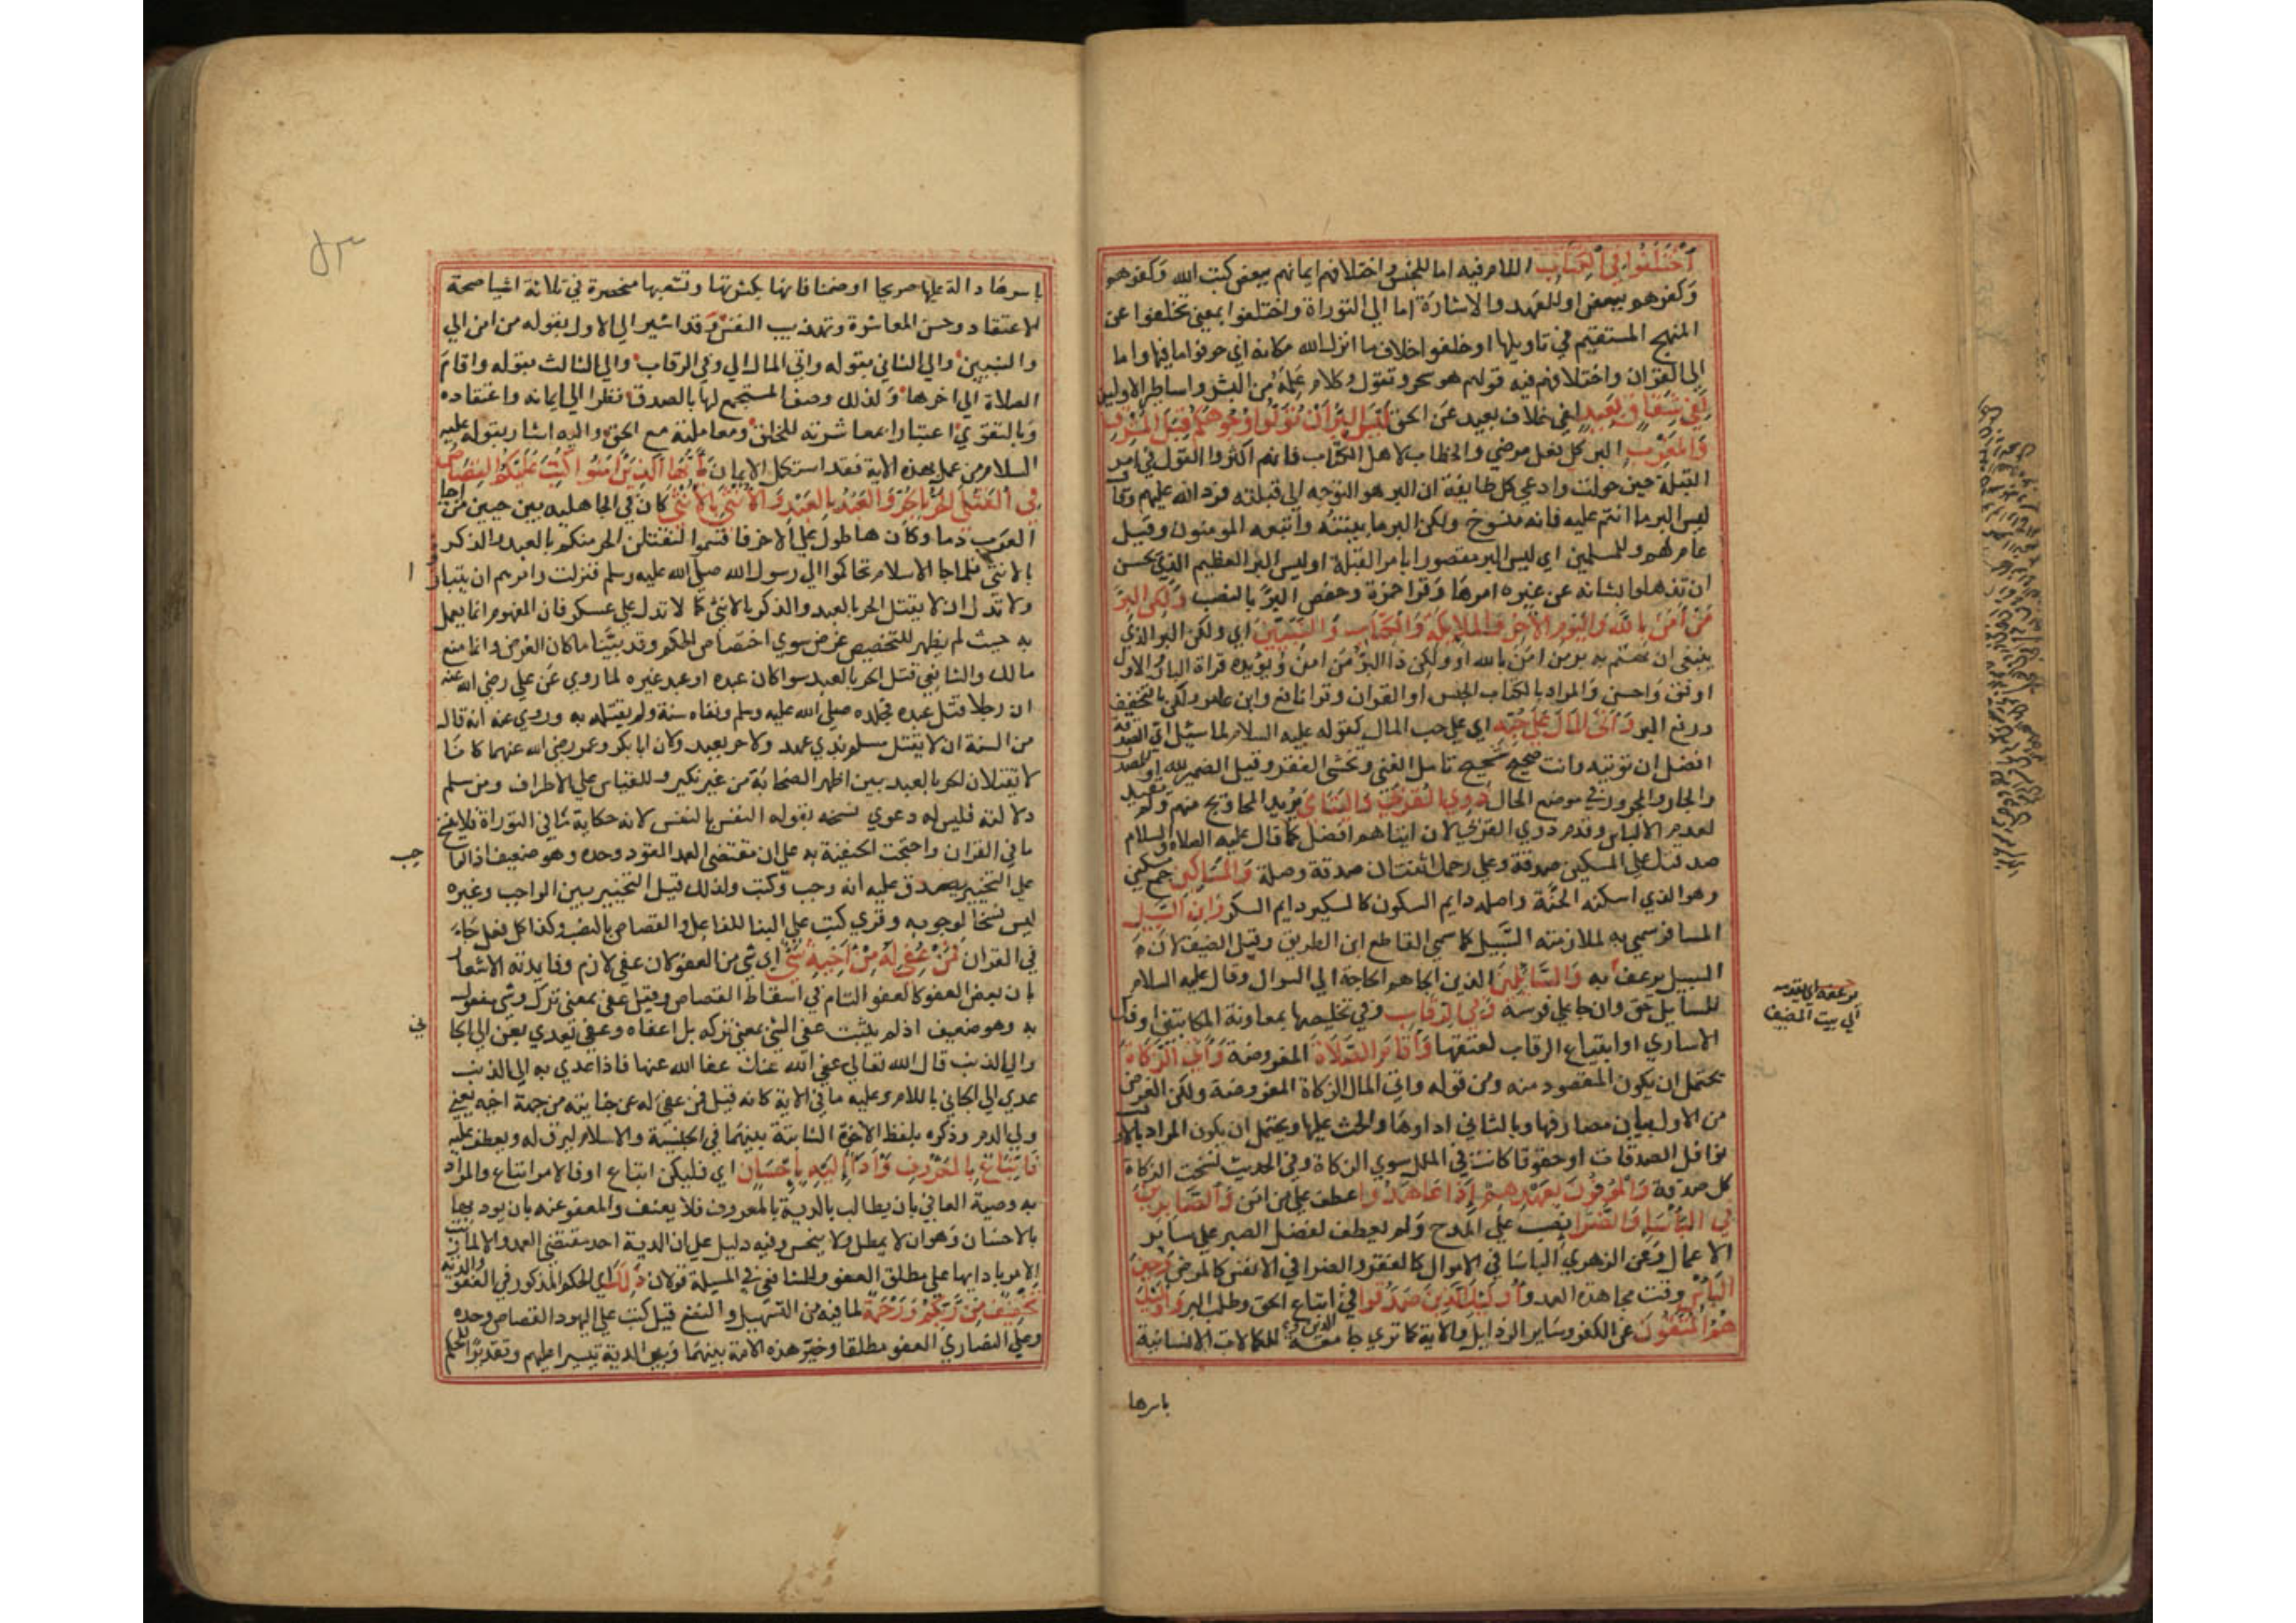 اختلفوا في الكتاب اللام فيه اما للجنس واختلافهم ايمانهم ببعض كتب الله وكفرهم
وكفرهم ببعض او للعهد والاشارة اما الي التوراة واختلفوا بمعني تخلفوا عن
المنهج المستقيم في تاويلها او خلفوا خلاف ما انزل الله مكانه اي حرفوا ما فيها واما
الي القران واختلافهم فيه قولهم هو سحر وتقول وكلام علمه من البشر واساطير الاولين
لفي شقاق بعيد لفي خلاف بعيد عن الحق ليس البر ان تولوا وجوهكم قبل المشرق
والمغرب البر كل فعل مرضي والخطاب لاهل الكتاب فانهم اكثروا القول في امر
القبلة حين حولت وادعي كل طايفة ان البر هو التوجه الي قبلته فرد الله عليهم وقال
ليس البر ما انتم عليه فانه منسوخ ولكن البر ما بينته واتبعه المومنون وقيل
عام لهم وللمسلمين اي ليس البر مقصورا بامر القبلة او ليس البر العظيم الذي يحسن
ان تذهلوا بشانه عن غيره امرها وقرا حمزة وحفص البر بالنصب ولكن البر
من امن بالله واليوم الاخر والملايكة والكتاب والنبيين اي ولكن البر الذي
ينبغي ان يهتم به بر من امن بالله او ولكن ذا البر من امن ويويده قراة البار والاول
اوفق واحسن والمراد بالكتاب الجنس او القران وقرا نافع وابن عامر ولكن بالتخفيف
ورفع البر واتي المال علي حبه اي علي حب المال كقوله عليه السلام لما سئل اي الصدقة
افضل ان توتيه وانت صحيح شحيح تامل الغني وتخشي الفقر وقيل الضمير لله او للمصدر
والجار والمجرور في موضع الحال ذوي القربي واليتامي يريد المحاويج منهم ولم يقيد
لعدم الالباس وقدم ذوي القربي لان ايتاهم افضل كما قال عليه الصلاة والسلام
صدقتك علي المسكين صدقة وعلي رحمك اثنتان صدقة وصلة والمساكين جمع مسكين
وهو الذي اسكنه الخلة واصله دايم السكون كالمسكير دايم السكر وابن السبيل
المسافر سمي به لملازمته السبيل كما سمي القاطع ابن الطريق وقيل الضيف لان
السبيل يرعف به والسائلين الذين الجاهم الحاجة الي السوال وقال عليه السلام
للسايل حق وان جا علي فرسه وفي الرقاب وفي تخليصها بمعاونة المكاتبين او فك
الاساري او ابتياع الرقاب لعتقها واقام الصلاة المفروضة واتي الزكاة
يحتمل ان يكون المقصود منه ومن قوله واتي المال الزكاة المفروضة ولكن الغرض
من الاول بيان مصارفها وبالثاني اداوها والحث عليها ويحتمل ان يكون المراد بالاول
نوافل الصدقات او حقوقا كانت في المال سوي الزكاة وفي الحديث نسخت الزكاة
كل صدقة والموفون بعهدهم اذا عاهدوا عطف علي من امن والصابرين
في الباسا والضرا نصب علي المدح ولم يعطف لفضل الصبر علي ساير
الاعمال وعن الزهري الباسا في الاموال كالفقر والضرا في الانفس كالمرض وحين
الباس وقت مجاهدة العدو اوليك الذين صدقوا في الدين واتباع الحق وطلب البر واوليك
هم المتقون عن الكفر وساير الرذايل والاية كما تري جامعة للكمالات الانسانية
باسرها
يرعف اي يقدمه
الي بيت المضيف
باسرها دالة عليها صريحا او ضمنا فانها بكثرتها وتشعبها منحصرة في ثلاثة اشيا صحة
الاعتقاد وحسن المعاشرة وتهذيب النفس وقد اشير الي الاول بقوله من امن الي
والنبيين والي الثاني بقوله واتي المال الي وفي الرقاب والي الثالث بقوله واقام
الصلاة الي اخرها ولذلك وصف المستجمع لها بالصدق نظرا الي ايمانه واعتقاده
وبالتقوي اعتبارا بمعاشرته للخلق ومعاملته مع الحق واليه اشار بقوله عليه
السلام من عمل بهذه الاية فقد استكمل الايمان يا ايها الذين امنوا كتب عليكم القصاص
في القتلي الحر بالحر والعبد بالعبد والانثي بالانثي كان في الجاهلية بين حيين من احيا
العرب دما وكان لاحدهما طول علي الاخر فاقسموا لنقتلن الحر منكم بالعبد والذكر
بالانثي فلما جا الاسلام تحاكموا الي رسول الله صلي الله عليه وسلم فنزلت وامرهم ان يتباوا
ولا تدل ان لا يقتل الحر بالعبد والذكر بالانثي كما لا تدل علي عسكه فان المفهوم انما يعمل
به حيث لم يظهر للتخصيص غرض سوي اختصاص الحكم وقد بينا ما كان الغرض وانما منع
مالك والشافعي قتل الحر بالعبد سوا كان عبده او عبد غيره لما روي عن علي رضي الله عنه
ان رجلا قتل عبده فجلده صلي الله عليه وسلم ونفاه سنة ولم يقتله به وروي عنه انه قال
من السنة ان لا يقتل مسلم بذي عهد ولا حر بعبد وكان ابا بكر وعمر رضي الله عنهما كانا
لا يقتلان الحر بالعبد بين اظهر الصحابة من غير نكير وللقياس علي الاطراف ومن سلم
دلالته فليس له دعوي نسخه بقوله النفس بالنفس لانه حكاية ما في التوراة فلا ينسخ
ما في القران واحتجت الحنفية به علي ان مقتضي العمد القود وحده وهو ضعيف اذ الواجب
علي التخيير يصدق عليه انه وجب وكتب ولذلك قيل التخيير بين الواجب وغيره
ليس نسخا لوجوبه وقري كتب علي البنا للفاعل والقصاص بالنصب وكذا كل فعل جاء
في القران فمن عفي له من اخيه شي اي شي من العفو لان عفي لازم وفايدته الاشعار
بان بعض العفو كالعفو التام في اسقاط القصاص وقيل عفي بمعني ترك وشي مفعول
به وهو ضعيف اذ لم يثبت عفي الشي بمعني تركه بل اعفاه وعفي يعدي بعن الي الجاني
والي الذنب قال الله تعالي عفي الله عنك عفا الله عنها فاذا عدي به الي الذنب
عدي الي الجاني باللام وعليه ما في الاية كانه قيل فمن عفي له عن جنايته من جهة اخيه يعني
ولي الدم وذكره بلفظ الاخوة الثابتة بينهما في الجنسية والاسلام ليرق له ويعطف عليه
فاتباع بالمعروف واداء اليه باحسان اي فليكن اتباع او فالامر اتباع والمراد
به وصية العافي بان يطالب بالدية بالمعروف فلا يعنف والمعفو عنه بان يوديها
بالاحسان وهو ان لا يمطل ولا يبخس وفيه دليل علي ان الدية احد مقتضي العمد والا لما رتب
الامر بادايها علي مطلق العفو وللشافعي في المسيلة قولان ذلك اي الحكم المذكور في العفو والدية
تخفيف من ربكم ورحمة لما فيه من التسهيل والنفع قيل كتب علي اليهود القصاص وحده
وعلي النصاري العفو مطلقا وخير هذه الامة بينهما وبين الدية تيسيرا عليهم وتقديرا للحكم